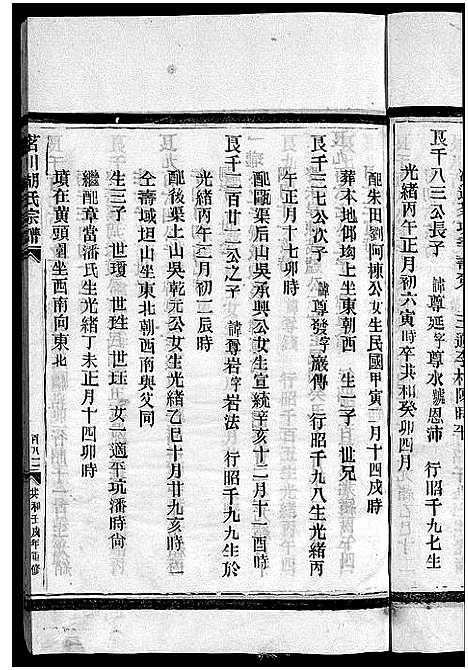 艮千八三公長子 諱尊延字尊水號恩沛 行昭千九七生
光緒丙午正月初六寅時卒共和癸卯四月
配朱田劉阿棟公女生民國甲寅二月十四戌時
葬本地郎坳上坐東朝西 生一子 世兄
艮千三七公次子 諱尊發字巖傳 行昭千九八生光緒丙
午正月十七卯時
配甌渠后山吳承興公女生宣統辛亥十二月十一酉時
艮千二百廿二公之子 諱尊岩字岩法 行昭千九九生於
光緒丙午二月初二辰時
配後葉上山吳乾元公女生光緒乙巳十月廿九亥時
仝壽域坦山坐東北朝西南與父同
生三子 世瓊 世甡 世珏 女一適平坑潘時尚
繼配章當潘氏生光緒丁未正月十四卯時
墳在黃頭坐西南向東北
茗川胡氏宗譜
共和壬戌年重修